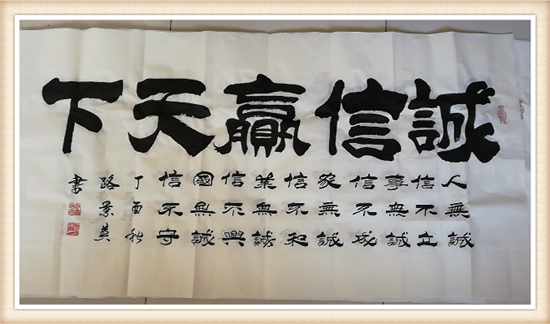 誠信贏天下
人無誠
信不立
事無誠
信不成
家無誠
信不和
業無誠
信不興
國無誠
信不守
丁酉秋
路景
書